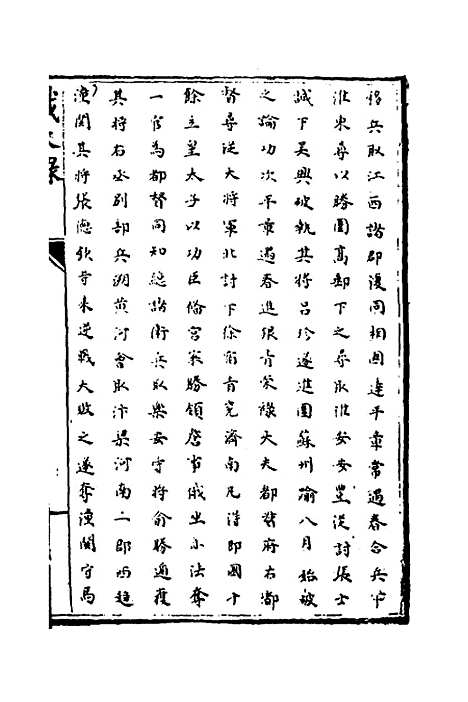 移兵取江西諸郡復同相國達平章常遇春合兵下
淮東尋以勝圍高郵下之尋取淮安安豐從討張士
誠下吳興破執其將呂珍遂進圍蘇州踰八月始破
之論功次平章遇春進銀青榮祿大夫都督府右都
督尋從大將軍北討下徐宿青兗濟南凡得郡國十
餘立皇太子以功臣備宮寀勝領詹事俄坐小法奪
一官為都督同知總諸衛兵取樂安守將俞勝遁獲
其將右丞別部兵溯黃河會取汴梁河南二郡西趨
潼關其將張德欽等來逆戰大敗之遂奪潼關守馬